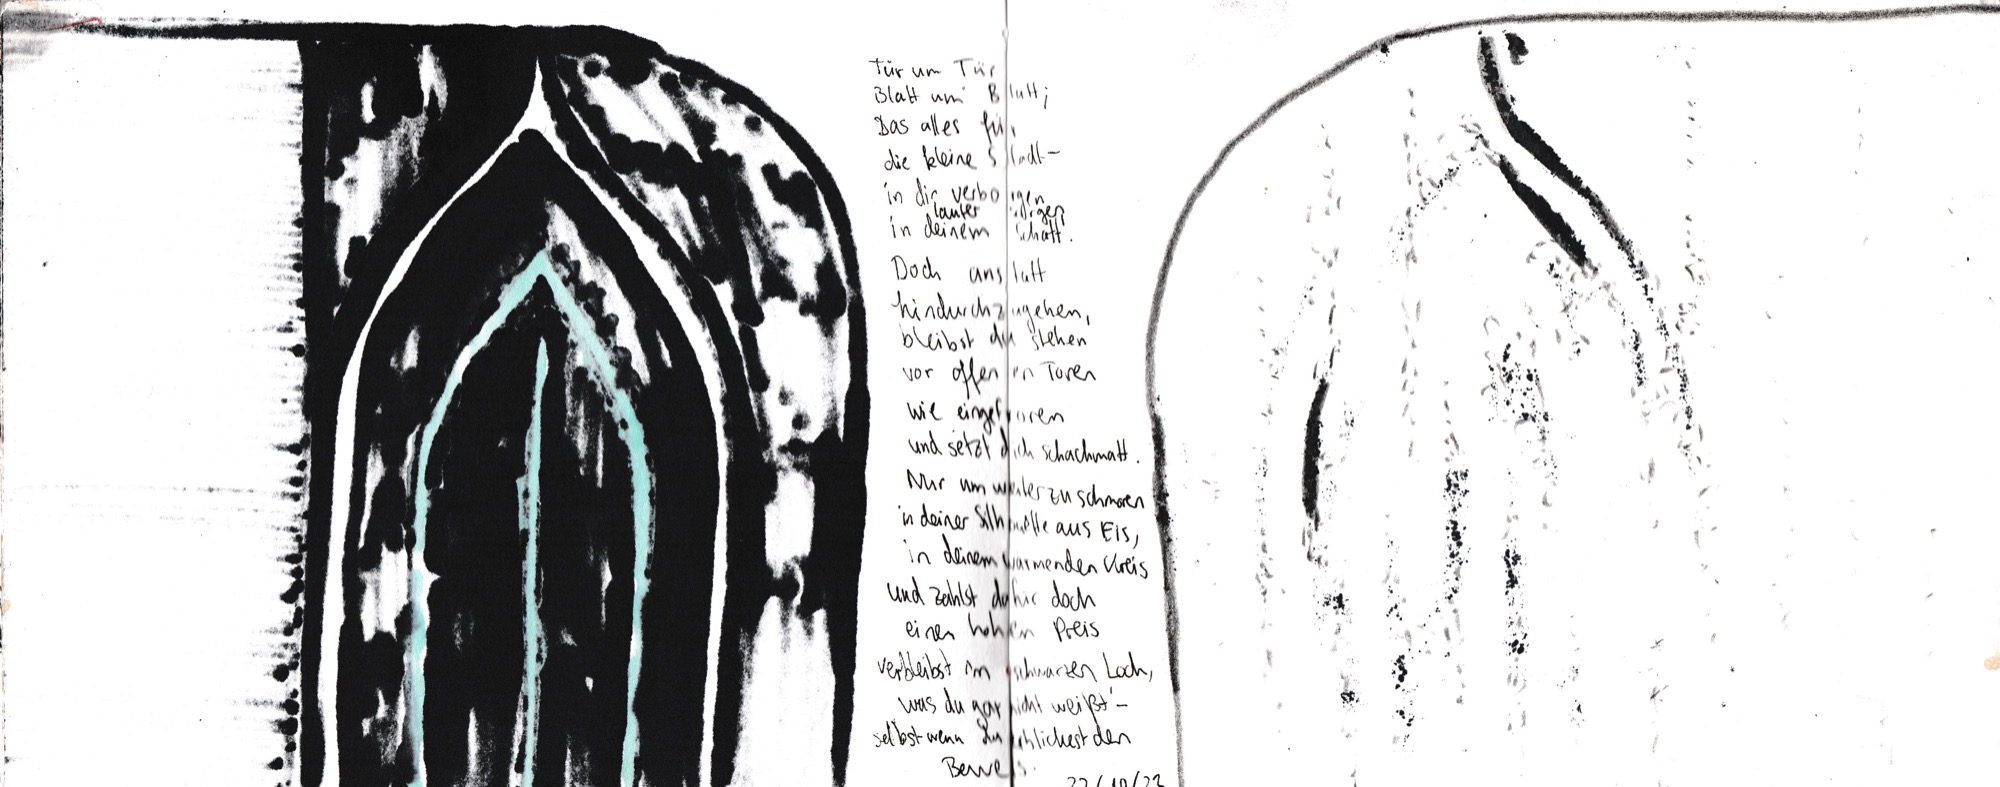 Tür um Tür
Blatt um Blatt;
Das alles für
die kleine Stadt-
in dir verborgen
lauter Sorgen
in deinem Schatt.
Doch anstatt
hindurchzugehen,
bleibst du stehen
vor offenen Toren
wie eingefroren
und setzt dich schachmatt.
Nur um weiter zu schmoren
in deiner Silhouette aus Eis,
in deinem wärmenden Kreis
und zahlst dafür doch
einen hohen Preis
verbleibst im schwarzen Loch,
was du gar nicht weißt -
selbst wenn du den
Beweis.